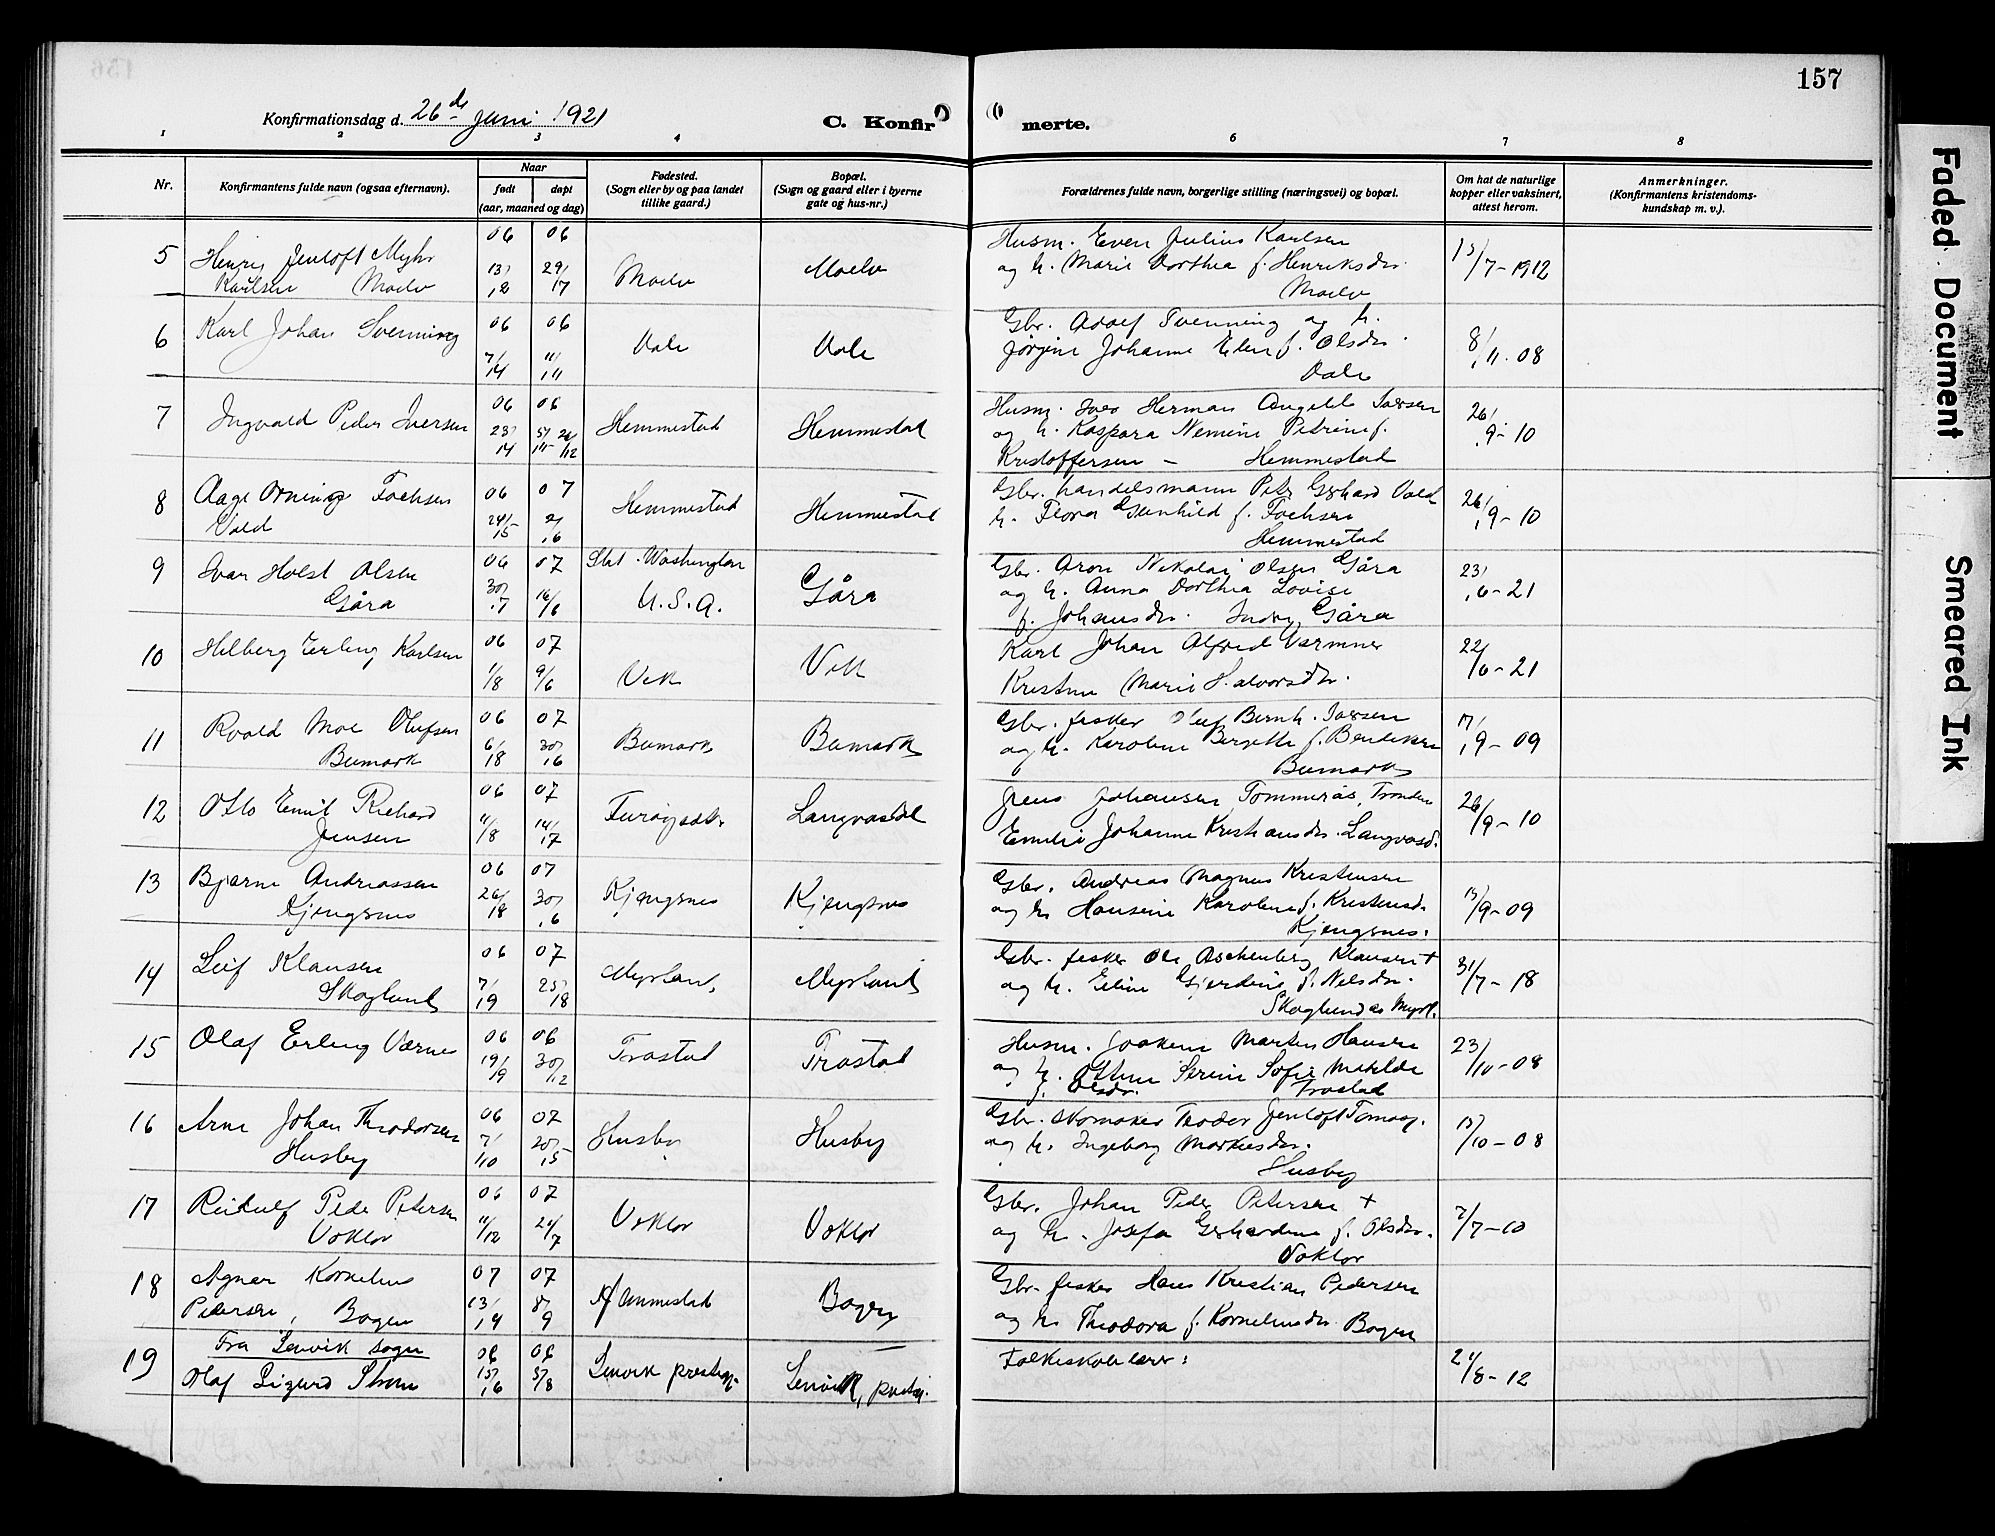 157
Konfirmationsdag d. 26de Juni 1921
C. Konfirmerte.
1 2 3 4 6 7 8
Nr.
Konfirmantens fulde navn (ogsaa efternavn).
Naar
født døpt
(aar, maaned og dag)
Fødested.
(Sogn eller by og paa landet
tillike gaard.)
Bopæl.
(Sogn og gaard eller i byerne
gate og hus-nr.)
Forældrenes fulde navn, borgerlige stilling (næringsvei) og bopæl.
Om hat de naturlige
kopper eller vaksinert,
attest herom.
Anmerkninger.
(Konfirmantens kristendoms-
kundskap m. v.).
5 Henry Jentoft Myhr
Karlsen Moelv
06 13/12 06 29/17 Moelv Moelv
Husm. Even Julius Karlsen
og h. Marie Dorthea f. Henriksdr.
Moelv
15/7-1912
6 Karl Johan Svenning
06 7/14 06 11/11 Vale Vale
Gbr. Adolf Svenning og h.
Jørgine Johanne Elen f. Olsdr.
Vale
8/11-08
7 Ingvald Peder Iversen
06 23/14 06 Hemmestad Hemmestad
Husm. Iver Herman Angell Iversen
og h. Kaspara Nemine Petrine f.
Kristoffersen - Hemmestad
26/9-10
8 Aage Orning Fochsen
Vold
06 24/15 07 2/6 Hemmestad Hemmestad
Gbr. handelsmann Petr Gerhard Vold
h. Flora Gunhild f. Fochsen
Hemmestad
26/9-10
9 Ivar Holst Olsen
Gåra
06 30/7 07 16/6 Stat. Washington
U.S.A. Gåra
Gbr. Aron Nikolai Olsen Gåra
og h. Anna Dorthea Lovise
f. Johansdr. Indre Gåra
23/6-21
10 Hilberg Erling Karlsen
06 1/8 07 9/6 Vik Vik
Karl Johan Alfred
Kristine Marie Halvorsdr.
22/6-21
11 Roald Moe Olufsen
Bumark
06 6/18 07 30/16 Bumark Bumark
Gbr. fisker Oluf Bernh. Iversen
og h. Karoline Bergitte f. Bendiksen
Bumark
7/9-09
12 Otto Emil Richard
Jensen
06 11/8 07 14/17 Langvasdal
Jens Johansen Tommerås,
Emilie Johanne Kristiansdr. Langvasd.
26/9-10
13 Bjarne Andreassen
Kjengsnes
06 26/18 07 30/6 Kjengsnes Kjengsnes
Gbr. Andreas Magnus Kristensen
og h. Hansine Karoline f. Kristensd.
Kjengsnes.
13/9-09
14 Leif Klausen
Skoglund
06 7/19 07 25/18 Myrland, Myrland
Gbr. fisker Ole Aschenberg Klausen +
og h. Eline Gjerdine f. Nelsdr.
Skoglund Myrl.
31/7-18
15 Olaf Erling Værnes
06 19/19 06 30/12 Trastad Trastad
Husm. Joakim Martin Hansen
og h. Serine Sofie Metilde
f. Olsdr. Trastad
23/10-08
16 Arne Johan Theodorsen
Husby
06 7/10 07 20/15 Husby Husby
Gbr. skomaker Teodor Jentoft Tomass.
og h. Ingeborg Markusdr.
Husby
15/10-08
17 Reidulf Peder Petersen
Voktor
06 11/12 07 21/7 Voktor Voktor
Gbr. Johan Peder Petersen +
og h. Josefa Gerhardine f. Olsdr.
Voktor
7/7-10
18 Agnar Kornelius
Pedersen, Bogen
07 13/14 07 8/9 Hemmestad Bogen
Gbr. fisker Hans Kristian Pedersen
og h. Theodora f. Korneliusdr. Bogen
Fra Lenvik sogn
19 Olaf Sigurd Strøm
06 15/16 06 5/8 Lenvik prestegj. Lenvik, prestegj.
Folkeskolelærer:
21/8-12
Faded Document
Smeared Ink